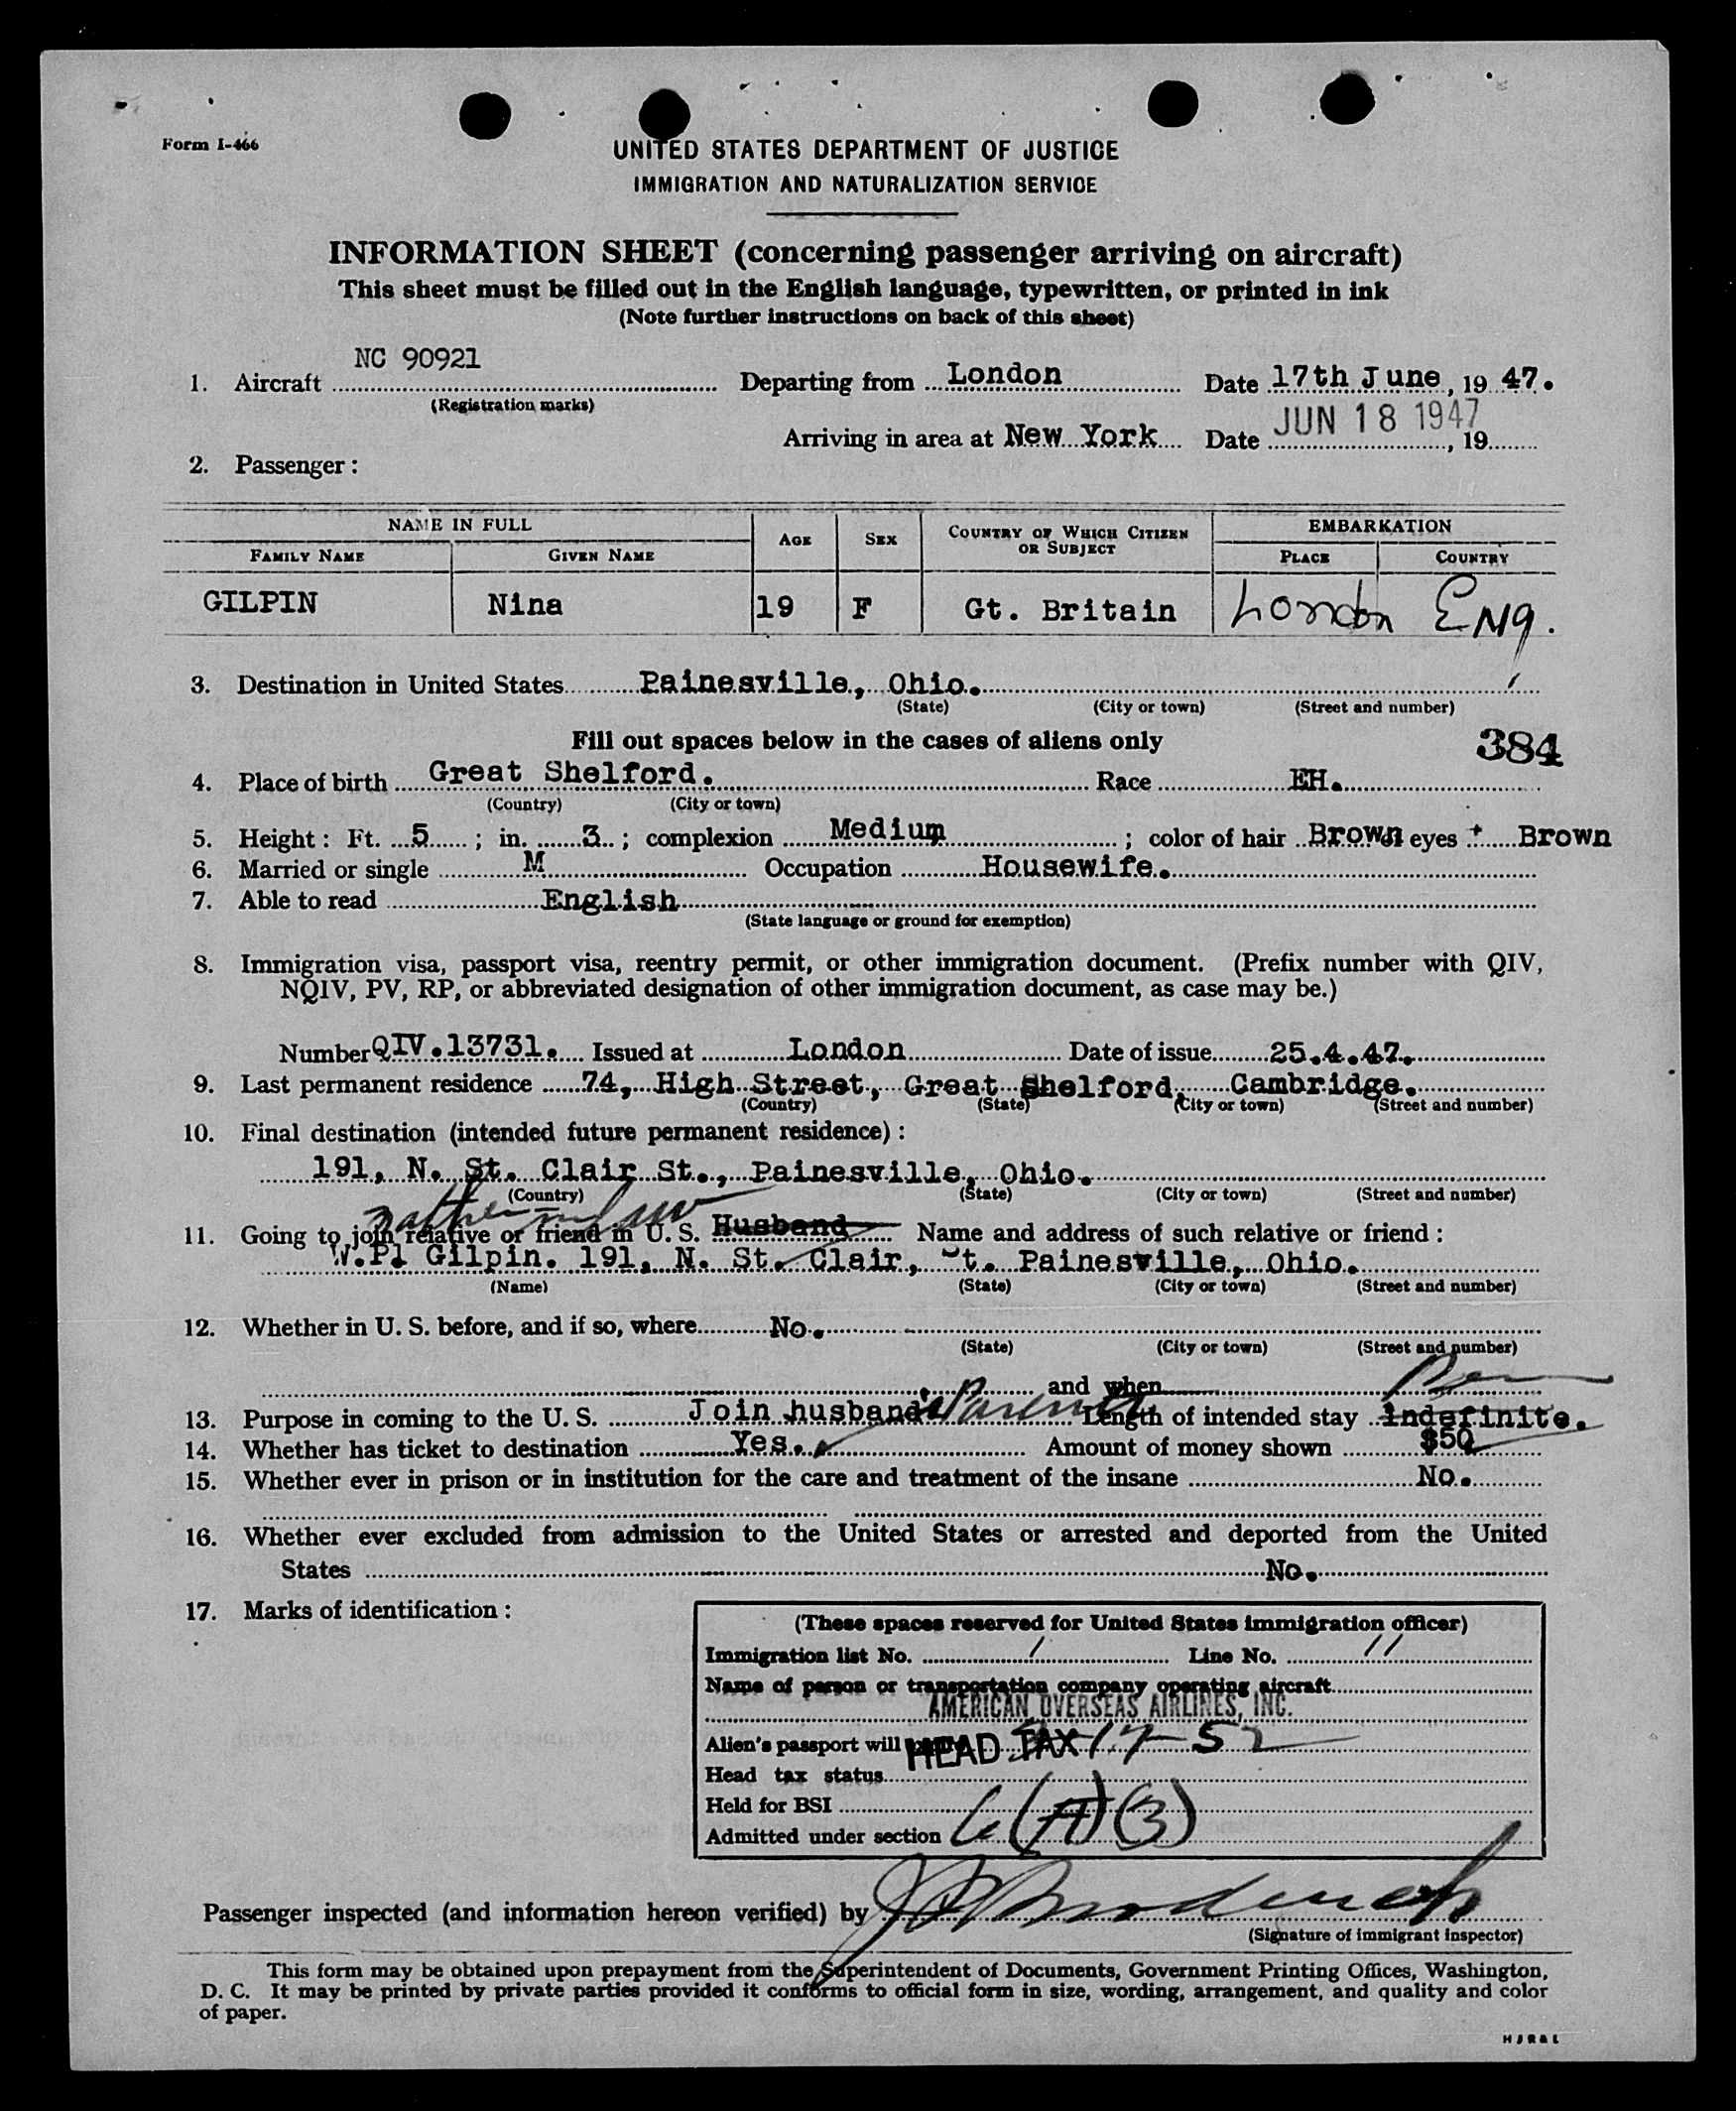 Form I-466
UNITED STATES DEPARTMENT OF JUSTICE
IMMIGRATION AND NATURALIZATION SERVICE
INFORMATION SHEET (concerning passenger arriving on aircraft)
This sheet must be filled out in the English language, typewritten, or printed in ink
(Note further instructions on back of this sheet)
1. Aircraft NC 90921 Departing from London Date 17th June, 19 47.
(Registration marks)
Arriving in area at New York Date JUN 18 1947, 19
2. Passenger:
NAME IN FULL AGE SEX COUNTRY OF WHICH CITIZEN OR SUBJECT EMBARKATION
FAMILY NAME GIVEN NAME PLACE COUNTRY
GILPIN Nina 19 F Gt. Britain London Eng.
3. Destination in United States Painesville, Ohio.
(State) (City or town) (Street and number)
Fill out spaces below in the cases of aliens only
384
4. Place of birth Great Shelford. Race EH.
(Country) (City or town)
5. Height: Ft. 5; in. 3; complexion Medium; color of hair Brown eyes Brown
6. Married or single M Occupation Housewife.
7. Able to read English
(State language or ground for exemption)
8. Immigration visa, passport visa, reentry permit, or other immigration document. (Prefix number with QIV,
NQIV, PV, RP, or abbreviated designation of other immigration document, as case may be.)
Number QIV.13731. Issued at London Date of issue 25.4.47.
9. Last permanent residence 74, High Street, Great Shelford, Cambridge.
(Country) (State) (City or town) (Street and number)
10. Final destination (intended future permanent residence):
191, N. St. Clair St., Painesville, Ohio.
(Country) (State) (City or town) (Street and number)
father in law
11. Going to join relative or friend in U. S. Husband Name and address of such relative or friend:
W.P. Gilpin. 191, N. St. Clair, St. Painesville, Ohio.
(Name) (State) (City or town) (Street and number)
12. Whether in U. S. before, and if so, where No.
(State) (City or town) (Street and number)
and when
13. Purpose in coming to the U. S. Join husband's Parents Length of intended stay Indefinite.
14. Whether has ticket to destination Yes. Amount of money shown $50
15. Whether ever in prison or in institution for the care and treatment of the insane No.
16. Whether ever excluded from admission to the United States or arrested and deported from the United
States No.
17. Marks of identification:
(These spaces reserved for United States immigration officer)
Immigration list No. 1 Line No. 11
Name of person or transportation company operating aircraft
AMERICAN OVERSEAS AIRLINES, INC.
Alien's passport will HEAD TAX 17-52
Head tax status
Held for BSI
Admitted under section 6(A)(3)
Passenger inspected (and information hereon verified) by
(Signature of immigrant inspector)
This form may be obtained upon prepayment from the Superintendent of Documents, Government Printing Offices, Washington,
D. C. It may be printed by private parties provided it conforms to official form in size, wording, arrangement, and quality and color
of paper.